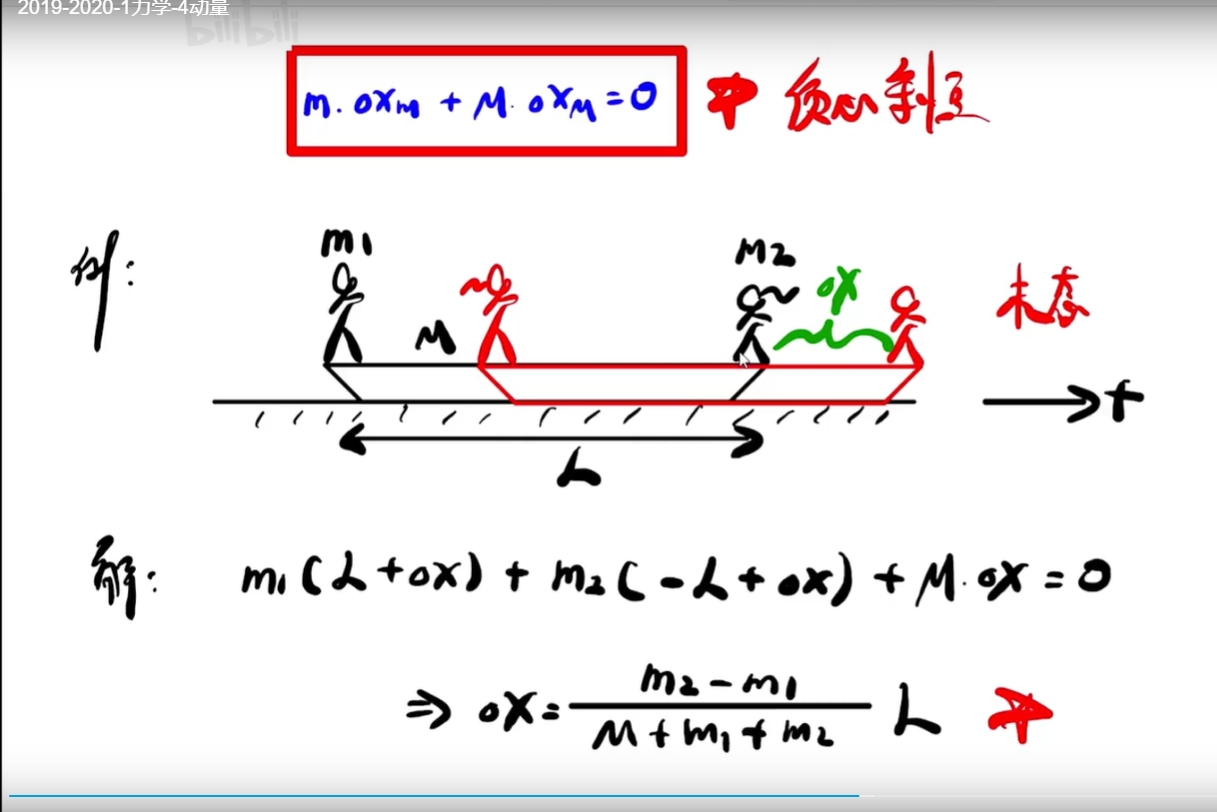 2019-2020-1力学-4动量
bilibili
m·ΔXm + M·ΔXM = 0 质心
例:
m1 m2 ΔX 末态
M
+
L
解: m1(L+ΔX) + m2(-L+ΔX) + M·ΔX = 0
⇒ ΔX = (m2-m1)/(M+m1+m2) L